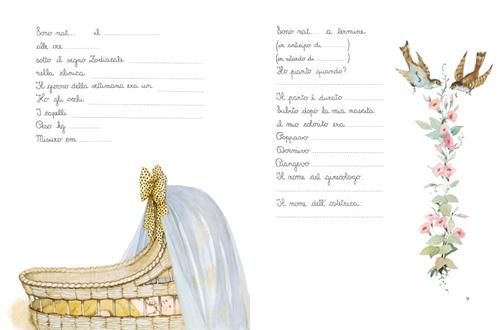 Sono nat.... il
alle ore
sotto il segno Zodiacale
nella clinica
Il giorno della settimana era un
Ho gli occhi
I capelli
Peso kg
Misuro cm
Sono nat.... a termine
(in anticipo di )
(in ritardo di )
Ho pianto quando?
Il parto è durato
Subito dopo la mia nascita
il mio colorito era
Poppavo
Dormivo
Piangevo
Il nome del ginecologo:
Il nome dell'ostetrica:
9